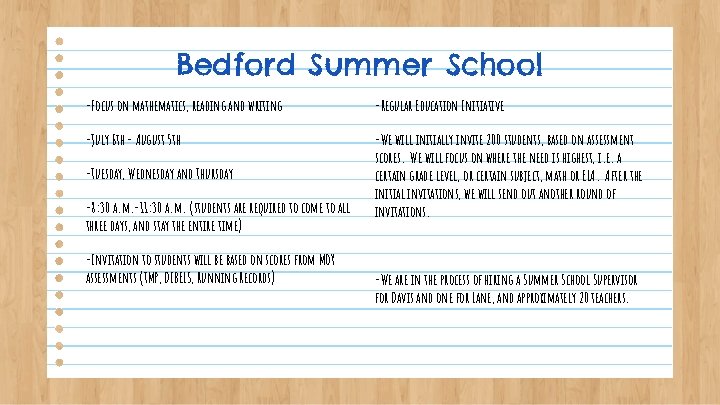 Bedford Summer School
-Focus on mathematics, reading and writing
-July 8th - August 5th
-Tuesday, Wednesday and Thursday
-8:30 a.m.-11:30 a.m. (students are required to come to all
three days, and stay the entire time)
-Invitation to students will be based on scores from MOY
assessments (TMP, DIBELS, Running Records)
-Regular Education Initiative
-We will initially invite 200 students, based on assessment
scores. We will focus on where the need is highest, i.e. a
certain grade level, or certain subject, math or ELA. After the
initial invitations, we will send out another round of
invitations.
-We are in the process of hiring a Summer School Supervisor
for Davis and one for Lane, and approximately 20 teachers.